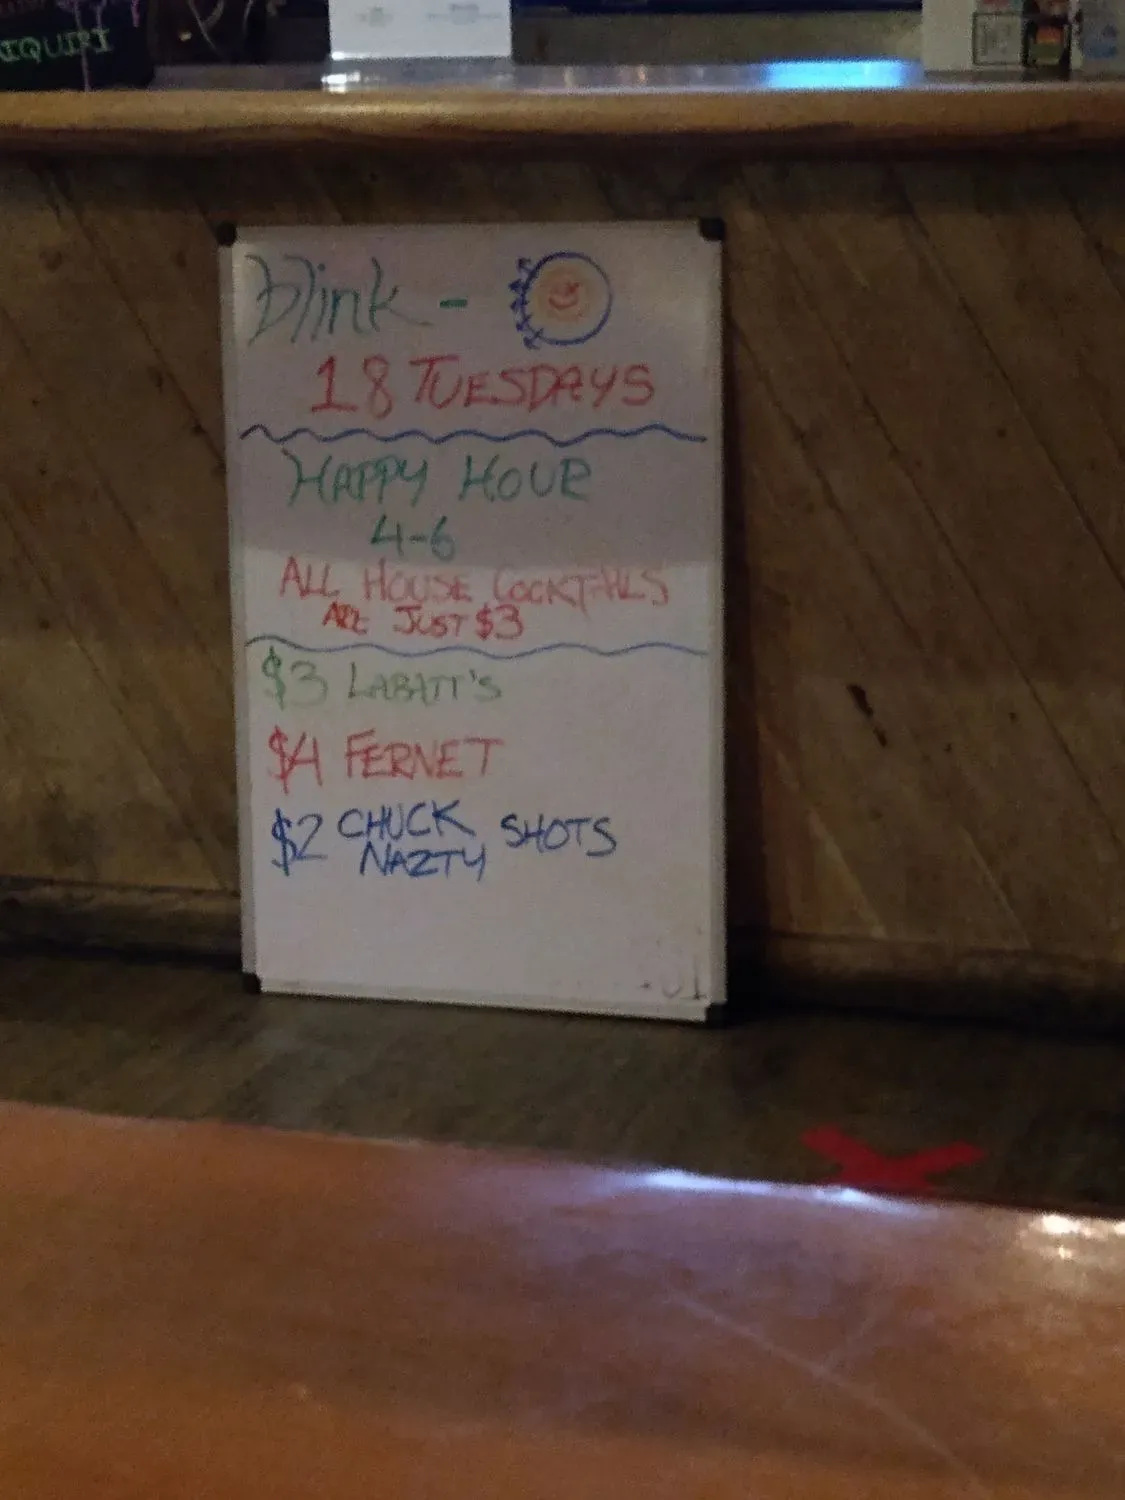 IQUIRI
blink-
18 TUESDAYS
HAPPY HOUR
4-6
ALL HOUSE COCKTAILS
ARE JUST $3
$3 LABATT'S
$4 FERNET
$2 CHUCK NAZTY SHOTS